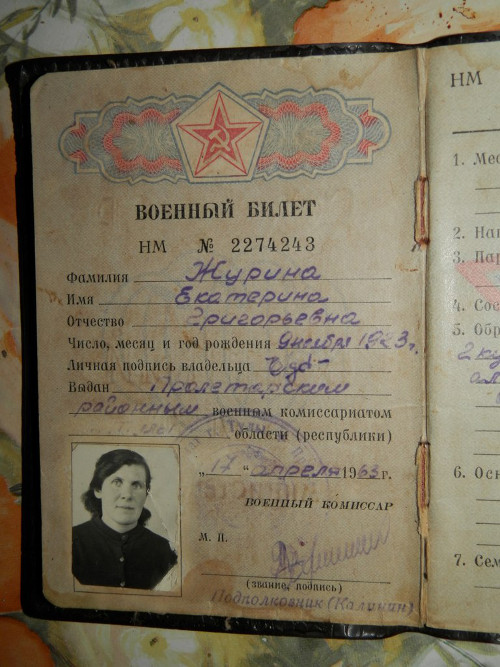 ВОЕННЫЙ БИЛЕТ
НМ № 2274243
Фамилия Журина
Имя Екатерина
Отчество Григорьевна
Число, месяц и год рождения 9 ноября 1923 г.
Личная подпись владельца
Выдан Пролетарским
районным военным комиссариатом
области (республики)
„17“ апреля 1963 г.
ВОЕННЫЙ КОМИССАР
М. П.
(звание, подпись)
Подполковник (Калинин)
НМ
1. Мес
2. Нац
3. Пар
4. Сос
5. Обр
2 ку
6. Осн
7. Сем